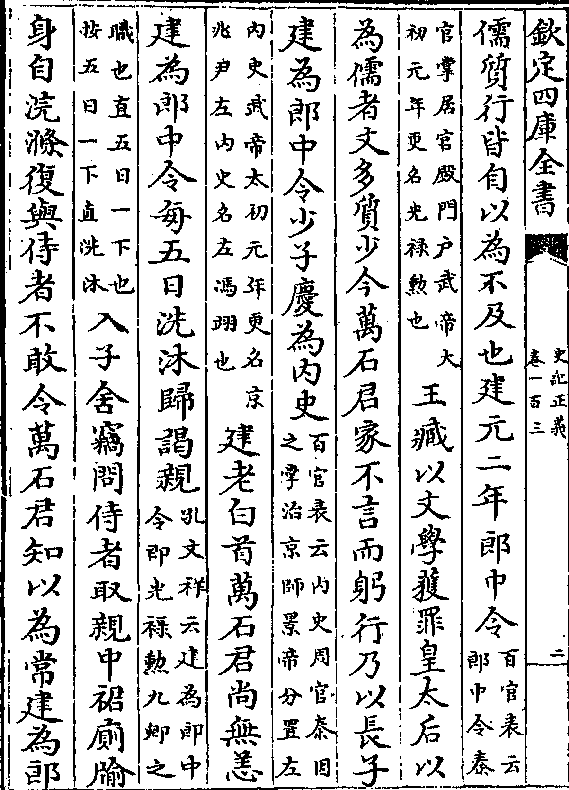 欽定四庫全書
史記正義
卷一百三
二
儒質行皆自以為不及也建元二年郎中令百官表云郎中令秦
官掌居官殿門户武帝大初元年更名光祿勲也王臧以文學獲罪皇太后以
為儒者文多質少今萬石君家不言而躬行乃以長子
建為郎中令少子慶為内史百官表云内史周官秦因之掌治京師景帝分置左
内史武帝太初元年更名京兆尹左内史名左馮翊也建老白首萬石君尚無恙
建為郎中令每五日洗沐歸謁親孔文祥云建為郎中令即光祿勲九卿之
職也直五日一下也按五日一下直洗沐入子舍竊問侍者取親中裙廁牏
身自浣滌復與侍者不敢令萬石君知以為常建為郎